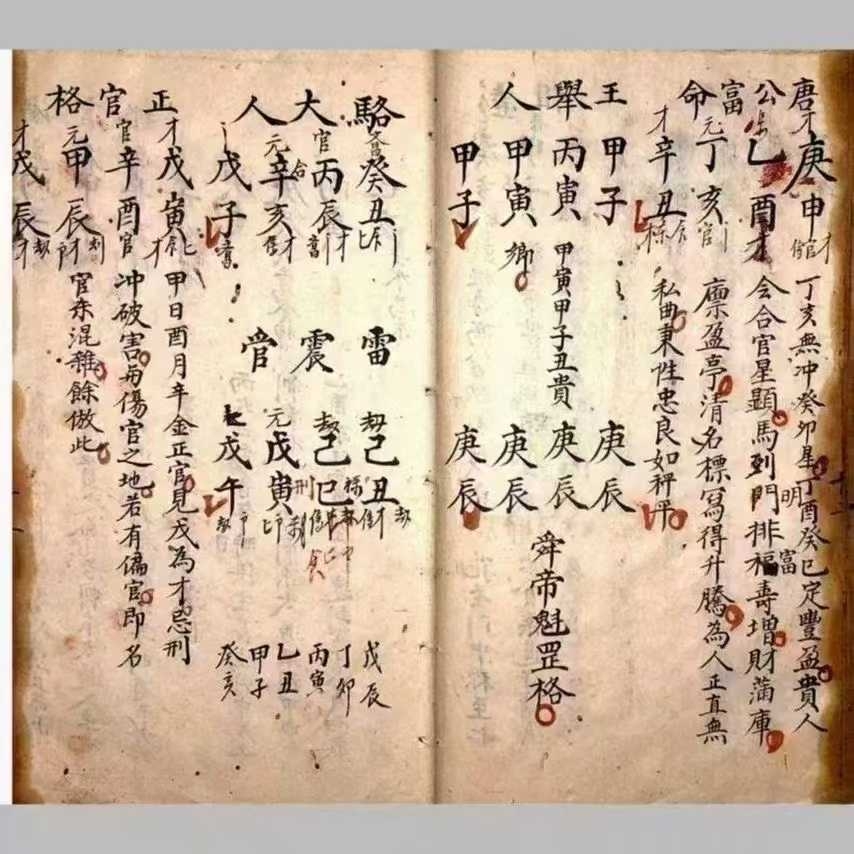 唐公富命
才庚申
乙酉才
元丁亥官
才辛丑
丁亥無冲癸卯星丁酉癸巳定豐盈貴人
会合官星顯馬到門排福壽增財滿庫
廪盈亭清名標寫得升騰為人正直無
私曲秉性忠良如秤平
明
富
王舉人
甲子
丙寅
甲寅
甲子
卿
甲寅甲子丑貴
庚辰
庚辰
庚辰
庚辰
舜帝魁罡格
駱大人
癸丑
官丙辰
元辛亥
戊子
雷震管
劫己丑
劫己巳
元戊寅
戊午
戊辰
丁卯
丙寅
乙丑
甲子
癸亥
正官格
才戊寅
官辛酉官
元甲辰
才戊辰
甲日酉月辛金正官見戊為才忌刑
冲破害傷官之地若有偏官即名
官杀混雜餘倣此